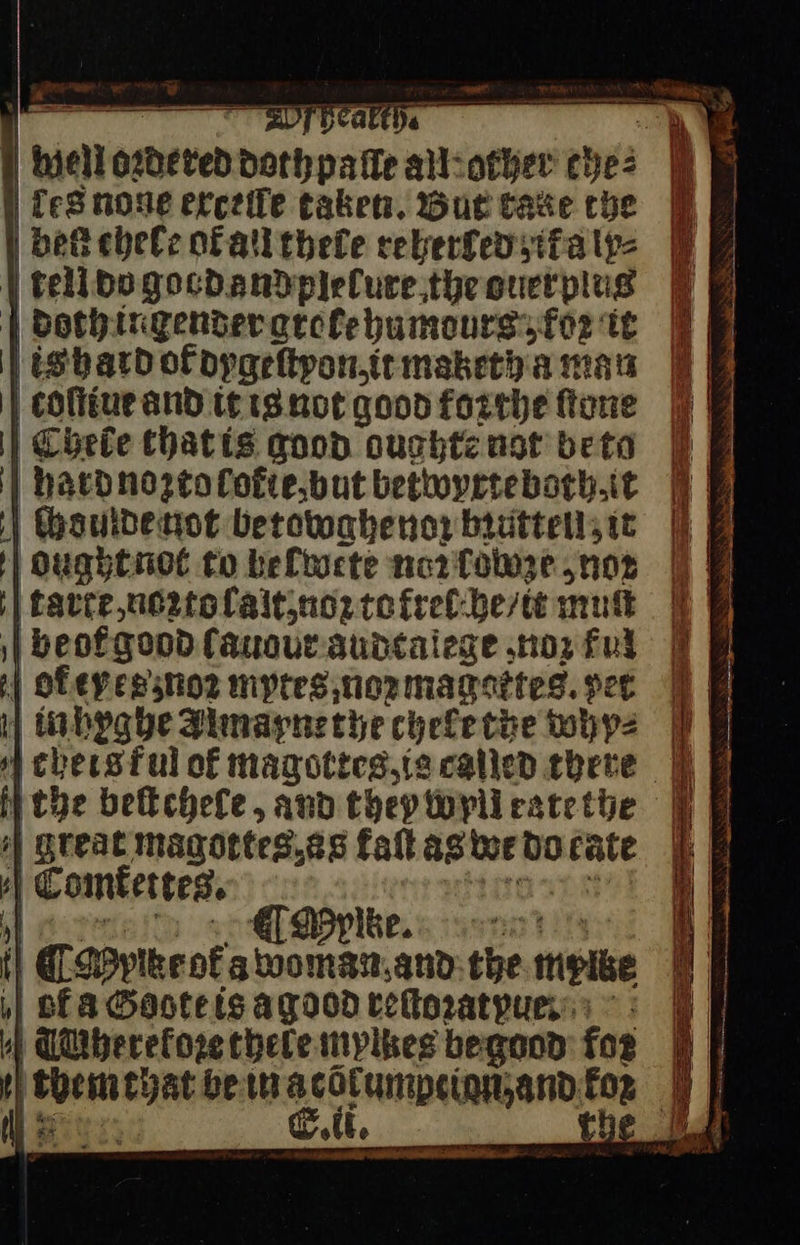 Of healthe
well ordered doth passe all other che=
ses none excesse taken. But take the
best chese of all these rehersed, if a ly=
tell do good and plesure, the ouerplus
doth ingender grose humours, for it
is hard of dygestyon, it maketh a man
costiue and it is not good for the stone
Chese that is good oughte not be to
hard nor to softe, but betwyxte both, it
shoulde not be towghe nor bruttell, it
ought not to be swete nor sowre, nor
tarte, nor to salt, nor to fresshe, it must
be of good sauour and talege, nor ful
of eyes, nor mytes, nor magottes. yet
in hyghe Almayne the chese the why=
che is ful of magottes, is called there
the best chese, and they wyll eate the
great magottes, as fast as we do eate
Comfettes.
¶ Mylke.
¶ Mylke of a woman, and the mylke
of a Goote is a good restoratyue,
Wherefore these mylkes be good for
them that be in a cosumpcion, and for
E.ii. the